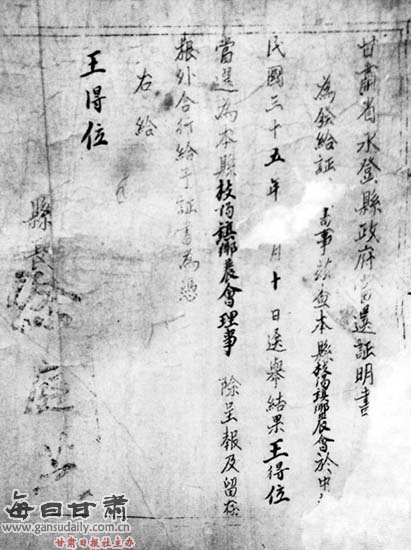 甘肅省永登縣政府當選証明書
為發給証 書事茲查本縣 鎮鄉農會於中
民國三十五年 月十日选舉結果王得位
當選為本縣 鎮鄉農會理事 除呈報及留存
根外合行給予証書為憑
右給
王得位
縣長徐
每日甘肃
www.gansudaily.com.cn
甘肃日报社主办